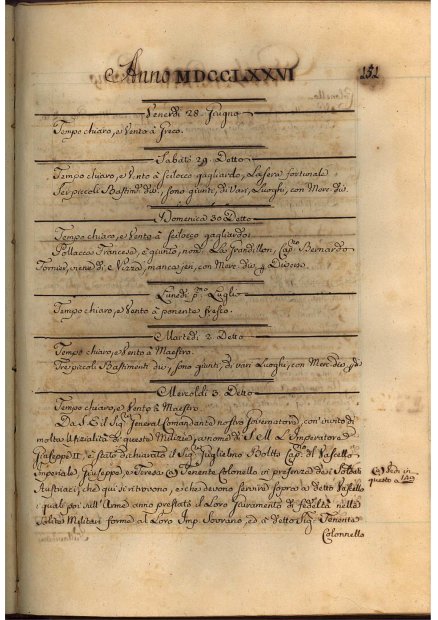 Anno MDCCLXXVI
151
Venerdi 28. Giugno
Tempo chiaro, e Vento à Greco.
Sabato 29. Detto
Tempo chiaro, e Vento à scilocco gagliardo, La sera fortunale
Sei piccoli Bastim.ti div.i, sono giunti, di Varj, Luoghi, con Merc. div.
Domenica 30 Detto
Tempo chiaro, e Vento à scilocco gagliardo
Pollacca Francese, è giunto, nom.ta La Grandillon, Cap.no Bernardo
Tornier, viene di Nizza, manca, con Merc. div. p Diversi.
Lunedi p.mo Luglio
Tempo chiaro, e Vento à ponente fresco.
Martedi 2. Detto
Tempo chiaro, e Vento à Maestro.
Tre piccoli Bastimenti div.i, sono giunti, di vari Luoghi, con Merc. div.
Mercoldi 3. Detto
Tempo chiaro, e Vento à Maestro
Da S. E. il Sig.r General Comandante nostro Governatore, con invito di
molta Ufizialità di queste Milizie, a nome di S. M. L'Imperatore
Giuseppe II, è stato dichiarato il Sig.r Guglielmo Bolts Cap.no del Vascello
Imperiale Giuseppe, e Teresa (a) Tenente Colonello in presenza dei Soldati
Austriaci, che qui si ritrovono, e che devono servire sopra a detto Vascello
i quali poi sull'Arme anno prestato il Loro giuramento di fedeltà nella
solita Militar forma al Loro Imp. Sovrano, ed a detto Sig.r Tenente
Colonnello
(a) Vedi in
questo a 149